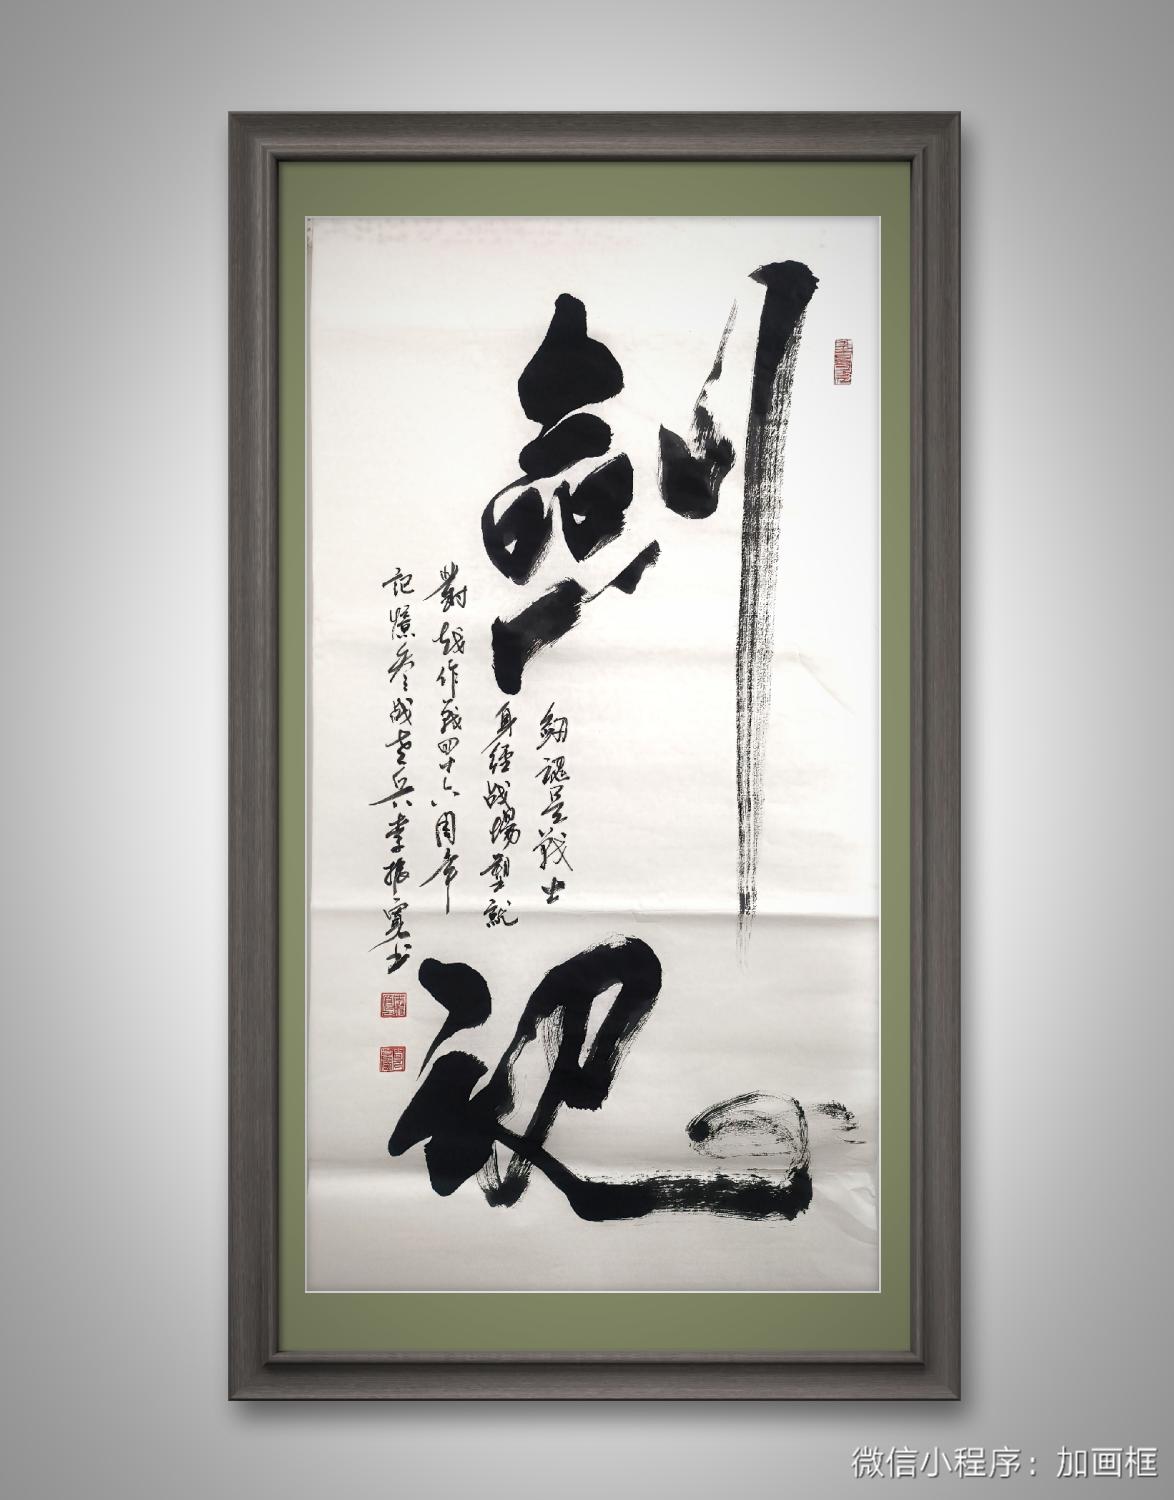 劍魂
劍魂是戰士
身經战場塑就
對越作戰四十六周年
記憶参战老兵李振寬书
微信小程序：加画框